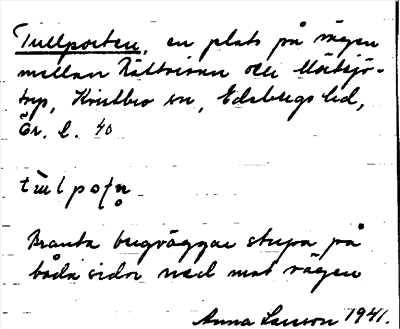 Tullporten, en plats på vägen
mellan Rättvisan och
torp, Kvistbro sn, Edsbergs hd,
Ör. l. 40
Branta bergväggar stupa på
båda sidor ned mot vägen
Anna Larsson 1941.